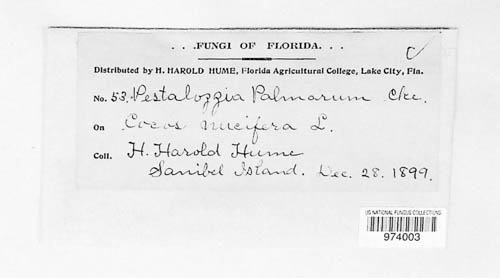 . . .FUNGI OF FLORIDA. . .
Distributed by H. HAROLD HUME, Florida Agricultural College, Lake City, Fla.
No. 53. Pestalozzia Palmarum Cke.
On Cocos nucifera L.
Coll. H. Harold Hume
Sanibel Island. Dec. 28. 1899.
US NATIONAL FUNGUS COLLECTIONS
974003